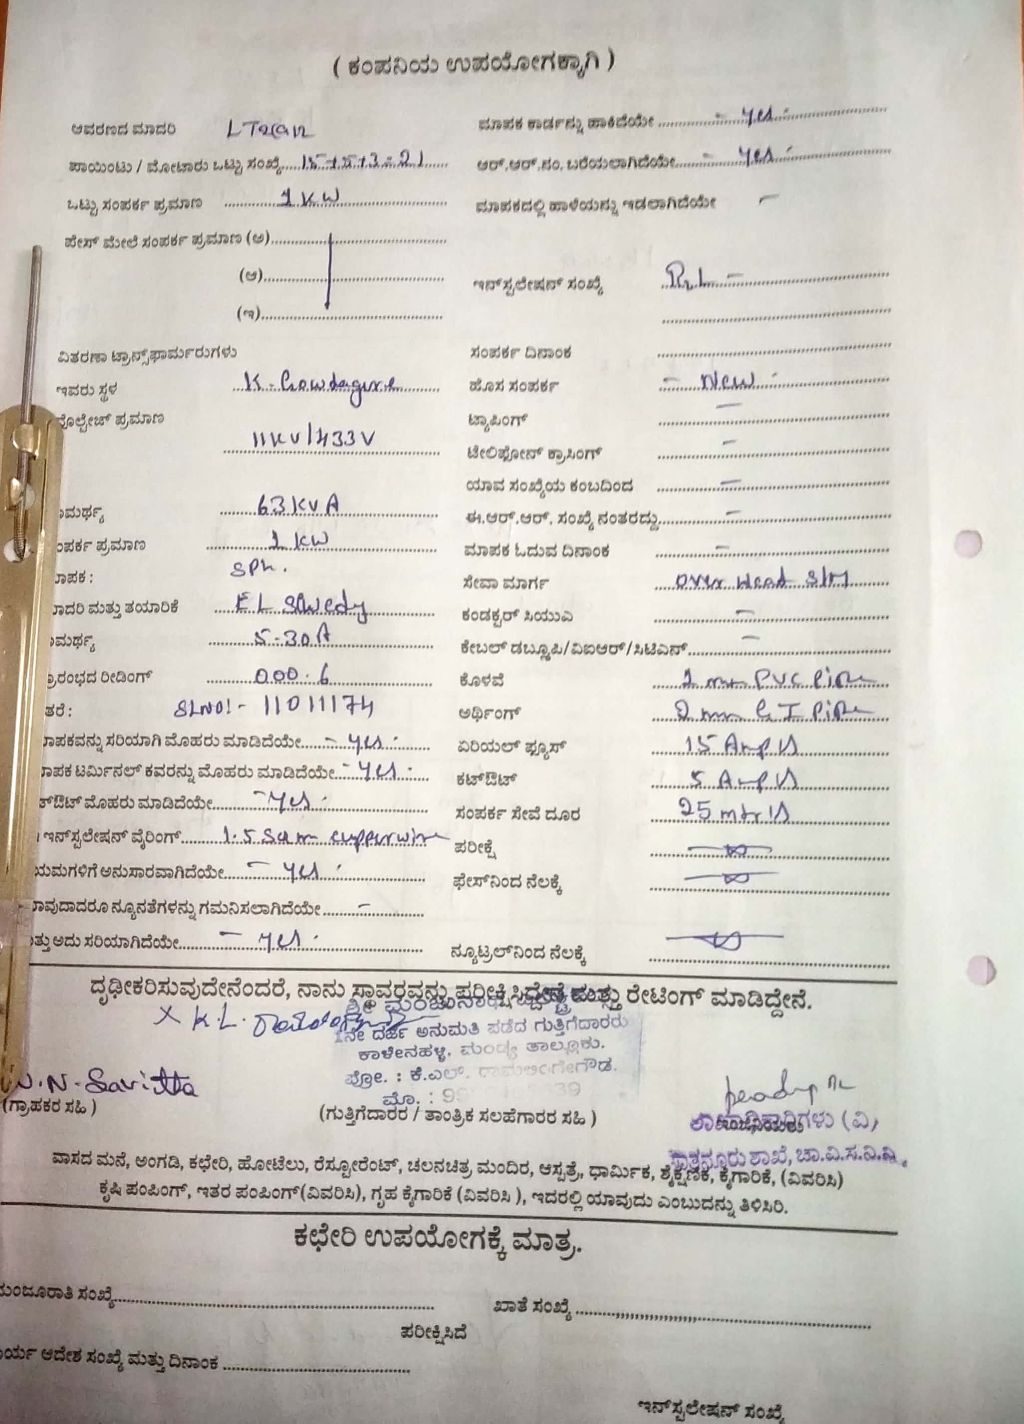 ( ಕಂಪನಿಯ ಉಪಯೋಗಕ್ಕಾಗಿ )
ಆವರಣದ ಮಾದರಿ
ಮಾಪಕ ಕಾರ್ಡನ್ನು ಹಾಕಿದೆಯೇ - yes -
ಪಾಯಿಂಟು / ಮೋಟಾರು ಒಟ್ಟು ಸಂಖ್ಯೆ 15+5+3=21
ಆರ್.ಆರ್.ನಂ. ಬರೆಯಲಾಗಿದೆಯೇ - yes -
ಒಟ್ಟು ಸಂಪರ್ಕ ಪ್ರಮಾಣ 1 KW
ಮಾಪಕದಲ್ಲಿ ಹಾಳೆಯನ್ನು ಇಡಲಾಗಿದೆಯೇ -
ಪೇಸ್ ಮೇಲೆ ಸಂಪರ್ಕ ಪ್ರಮಾಣ (ಅ)
(ಆ)
ಇನ್‌ಸ್ಟಲೇಷನ್ ಸಂಖ್ಯೆ
(ಇ)
ವಿತರಣಾ ಟ್ರಾನ್ಸ್‌ಫಾರ್ಮರುಗಳು
ಸಂಪರ್ಕ ದಿನಾಂಕ
ಇವರು ಸ್ಥಳ
ಹೊಸ ಸಂಪರ್ಕ - New -
ವೊಲ್ಟೇಜ್ ಪ್ರಮಾಣ 11KV/433V
ಟ್ಯಾಪಿಂಗ್ -
ಟೇಲಿಫೋನ್ ಕ್ರಾಸಿಂಗ್ -
ಯಾವ ಸಂಖ್ಯೆಯ ಕಂಬದಿಂದ -
ಾಮರ್ಥ್ಯ 63KVA
ಈ.ಆರ್.ಆರ್. ಸಂಖ್ಯೆ ನಂತರದ್ದು -
ಂಪರ್ಕ ಪ್ರಮಾಣ 1 KW
ಮಾಪಕ ಓದುವ ದಿನಾಂಕ -
ಾಪಕ : SPh.
ಸೇವಾ ಮಾರ್ಗ Over Head
ಾದರಿ ಮತ್ತು ತಯಾರಿಕೆ
ಕಂಡಕ್ಟರ್ ಸಿಯುಎ -
ಾಮರ್ಥ್ಯ 5-30A
ಕೇಬಲ್ ಡಬ್ಲೂಪಿ/ವಿಐಆರ್/ಸಿಟಿಎನ್ -
್ರಾರಂಭದ ರೀಡಿಂಗ್ 000.6
ಕೊಳವೆ 2 mm PVC Pipe
ತರೆ : SLNO:- 11011174
ಅರ್ಥಿಂಗ್ 2 mm G I Pipe
ಾಪಕವನ್ನು ಸರಿಯಾಗಿ ಮೊಹರು ಮಾಡಿದೆಯೇ - yes -
ಏರಿಯಲ್ ಫ್ಯೂಸ್ 15 Amp
ಾಪಕ ಟರ್ಮಿನಲ್ ಕವರನ್ನು ಮೊಹರು ಮಾಡಿದೆಯೇ - yes -
ಕಟ್‌ಔಟ್ 5 Amp
ಟ್‌ಔಟ್ ಮೊಹರು ಮಾಡಿದೆಯೇ - yes -
ಸಂಪರ್ಕ ಸೇವೆ ದೂರ 25 mtr
ಇನ್‌ಸ್ಟಲೇಷನ್ ವೈರಿಂಗ್
ಪರೀಕ್ಷೆ
ಯಮಗಳಿಗೆ ಅನುಸಾರವಾಗಿದೆಯೇ - yes -
ಫೇಸ್‌ನಿಂದ ನೆಲಕ್ಕೆ
ಾವುದಾದರೂ ನ್ಯೂನತೆಗಳನ್ನು ಗಮನಿಸಲಾಗಿದೆಯೇ -
ತ್ತು ಅದು ಸರಿಯಾಗಿದೆಯೇ - yes -
ನ್ಯೂಟ್ರಲ್‌ನಿಂದ ನೆಲಕ್ಕೆ
ದೃಢೀಕರಿಸುವುದೇನೆಂದರೆ, ನಾನು ಸ್ಥಾವರವನ್ನು ಪರೀಕ್ಷಿಸಿದ್ದೇನೆ ಮತ್ತು ರೇಟಿಂಗ್ ಮಾಡಿದ್ದೇನೆ.
X K.L.
1ನೇ ದರ್ಜೆ ಅನುಮತಿ ಪಡೆದ ಗುತ್ತಿಗೆದಾರರು
ಕಾಳೇನಹಳ್ಳಿ, ಮಂಡ್ಯ ತಾಲ್ಲೂಕು.
ಪ್ರೋ. : ಕೆ.ಎಲ್. ರಾಮಲಿಂಗೇಗೌಡ.
ಮೊ. :
N.N. Savitta
(ಗ್ರಾಹಕರ ಸಹಿ )
(ಗುತ್ತಿಗೆದಾರರ / ತಾಂತ್ರಿಕ ಸಲಹೆಗಾರರ ಸಹಿ )
ಶಾಖಾಧಿಕಾರಿಗಳು (ವಿ)
ಶಾಖೆ, ಚಾ.ವಿ.ಸ.ನಿ.ನಿ.
ವಾಸದ ಮನೆ, ಅಂಗಡಿ, ಕಛೇರಿ, ಹೋಟೆಲು, ರೆಸ್ಟೋರೆಂಟ್, ಚಲನಚಿತ್ರ ಮಂದಿರ, ಆಸ್ಪತ್ರೆ, ಧಾರ್ಮಿಕ, ಶೈಕ್ಷಣಿಕ, ಕೈಗಾರಿಕೆ, (ವಿವರಿಸಿ)
ಕೃಷಿ ಪಂಪಿಂಗ್, ಇತರ ಪಂಪಿಂಗ್(ವಿವರಿಸಿ), ಗೃಹ ಕೈಗಾರಿಕೆ (ವಿವರಿಸಿ ), ಇದರಲ್ಲಿ ಯಾವುದು ಎಂಬುದನ್ನು ತಿಳಿಸಿರಿ.
ಕಛೇರಿ ಉಪಯೋಗಕ್ಕೆ ಮಾತ್ರ.
ಮಂಜೂರಾತಿ ಸಂಖ್ಯೆ
ಖಾತೆ ಸಂಖ್ಯೆ
ಪರೀಕ್ಷಿಸಿದೆ
ಾರ್ಯ ಆದೇಶ ಸಂಖ್ಯೆ ಮತ್ತು ದಿನಾಂಕ
ಇನ್‌ಸ್ಟಲೇಷನ್ ಸಂಖ್ಯೆ